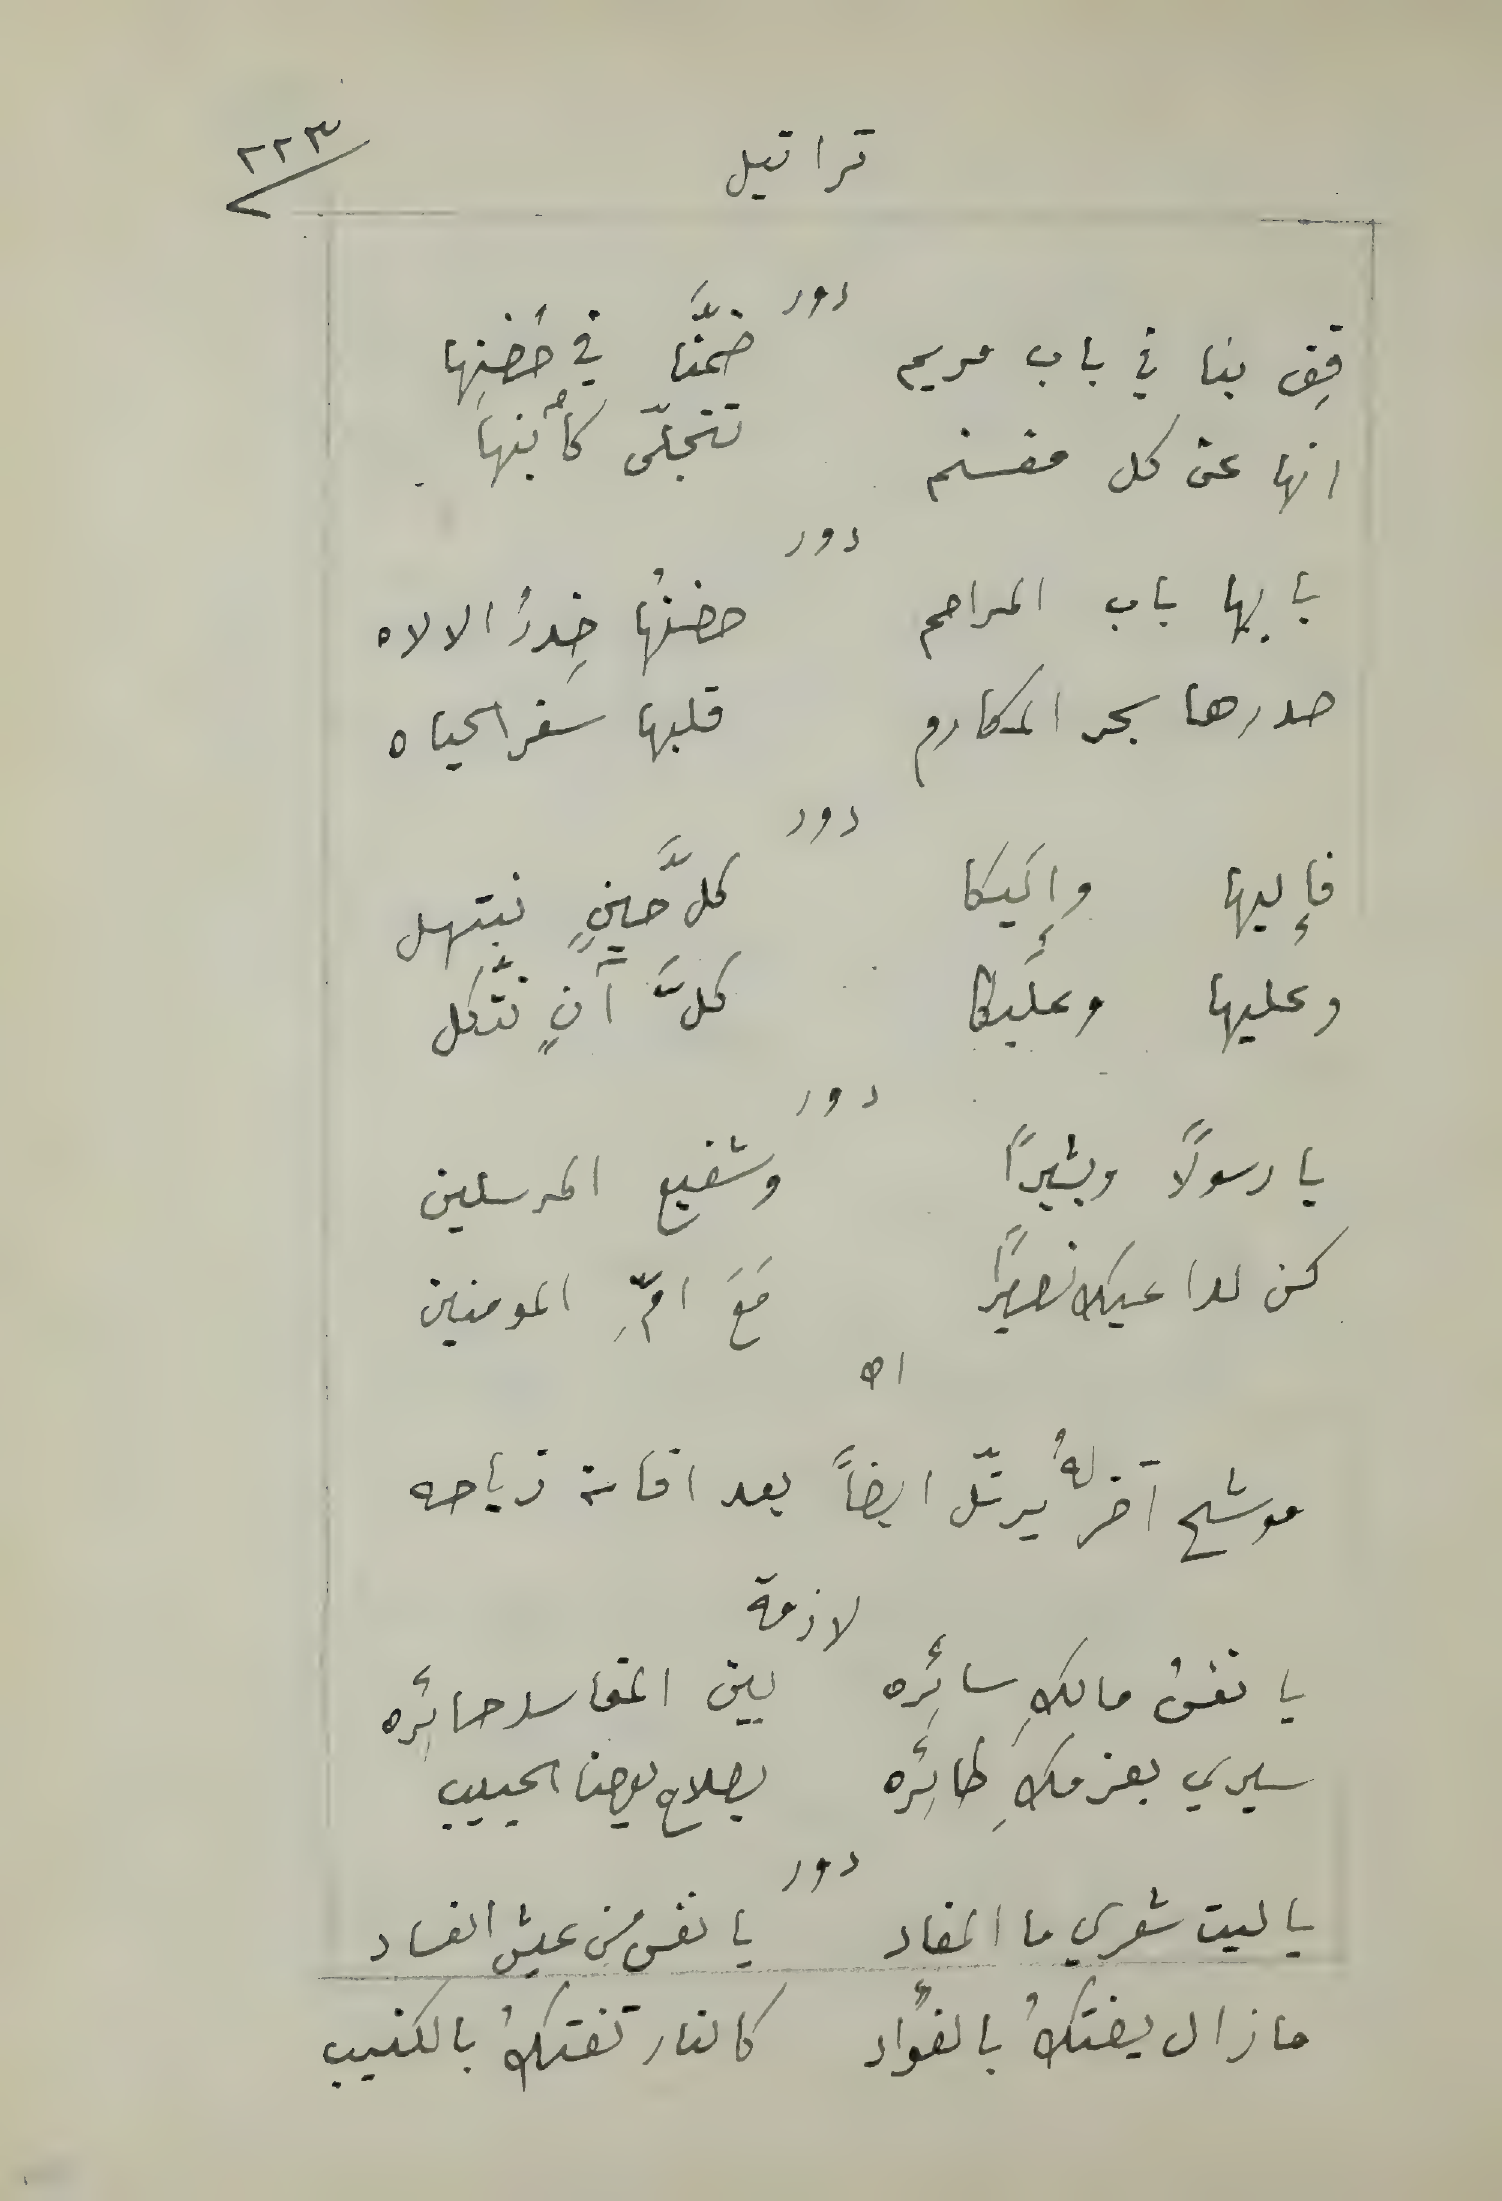 ٢٢٣
تراتيل
دور
قِف بنا في باب مريم ضمَّنا في حُضنِها
انها عن كل مغنم تتجلّى كأُبنها
دور
بابها باب المراحم حضنُها خِدرُ الالاه
صدرها بحر المكارم قلبها سَفر الحياه
دور
فإليها وإلَيكا كلَّ حينٍ نبتهل
وعليها وعلَيكا كلَّ آنٍ نتَّكل
دور
يا رسولاً وبشيراً وشفيع المرسلين
كن لداعيك نصيراً مَعَ امِّ المومنين
اه
موشح آخر لهُ يرتّل ايضاً بعد اقامة زياحه
لازمة
يا نفسُ مالكِ سائِره بين المفاسد حائِره
سيري بعزمكِ طائِره بصلاح يوحنا الحبيب
دور
يا ليت شعري ما المفاد يا نفس مِن عيش الفساد
ما زال يفتكُ بالفؤاد كالنار تفتكُ بالكثيب